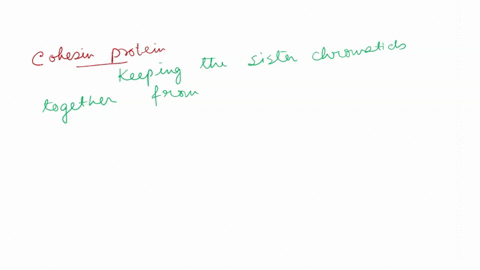 Cohesin protein
Keeping the sister chromatids
together from